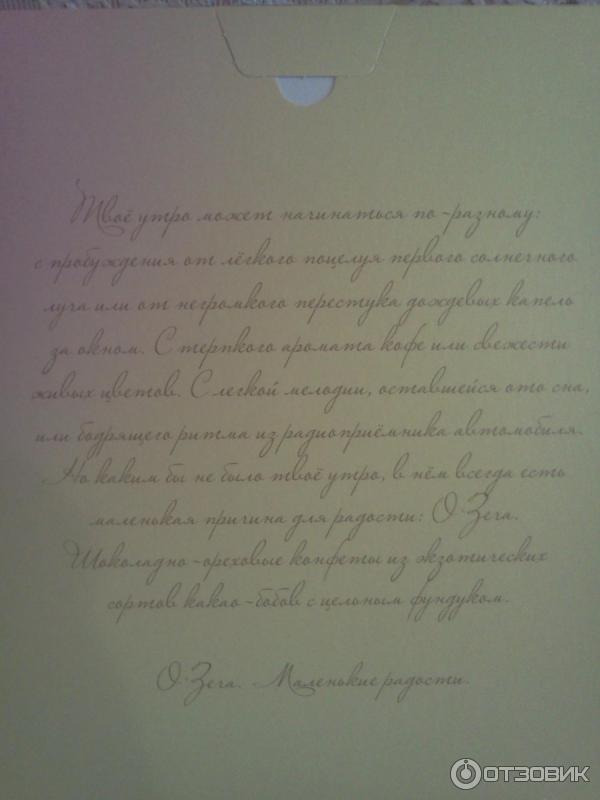 Твоё утро может начинаться по-разному:
с пробуждения от лёгкого поцелуя первого солнечного
луча или от негромкого перестука дождевых капель
за окном. С терпкого аромата кофе или свежести
живых цветов. С легкой мелодии, оставшейся ото сна,
или бодрящего ритма из радиоприёмника автомобиля.
Но каким бы не было твоё утро, в нём всегда есть
маленькая причина для радости: О'Зера.
Шоколадно-ореховые конфеты из экзотических
сортов какао-бобов с цельным фундуком.
О'Зера. Маленькие радости.
ОТЗОВИК